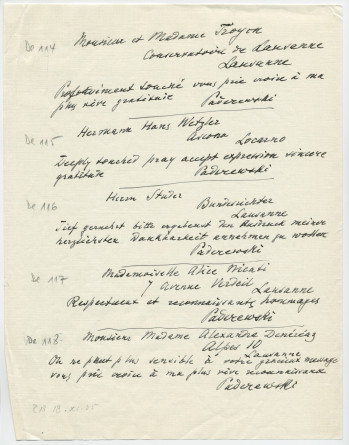 De 114
Monsieur et Madame Troyon
Conservatoire de Lausanne
Lausanne
Profondément touché vous prie croire à ma
plus vive gratitude Paderewski
De 115
Hermann Hans Wetzler
Ascona Locarno
Deeply touched pray accept expression sincere
gratitude Paderewski
De 116
Herrn Studer
Bundesrichter
Lausanne
Tief gerührt bitte ergebenst den Ausdruck meiner
herzlichsten Dankbarkeit annehmen zu wollen
Paderewski
De 117
Mademoiselle Alice
7 Avenue Verdeil Lausanne
Respectueux et reconnaissants hommages
Paderewski
De 118
Monsieur Madame Alexandre
Alpes 10
Lausanne
On ne peut plus sensible à votre gracieux message
vous prie croire à ma plus vive reconnaissance
Paderewski